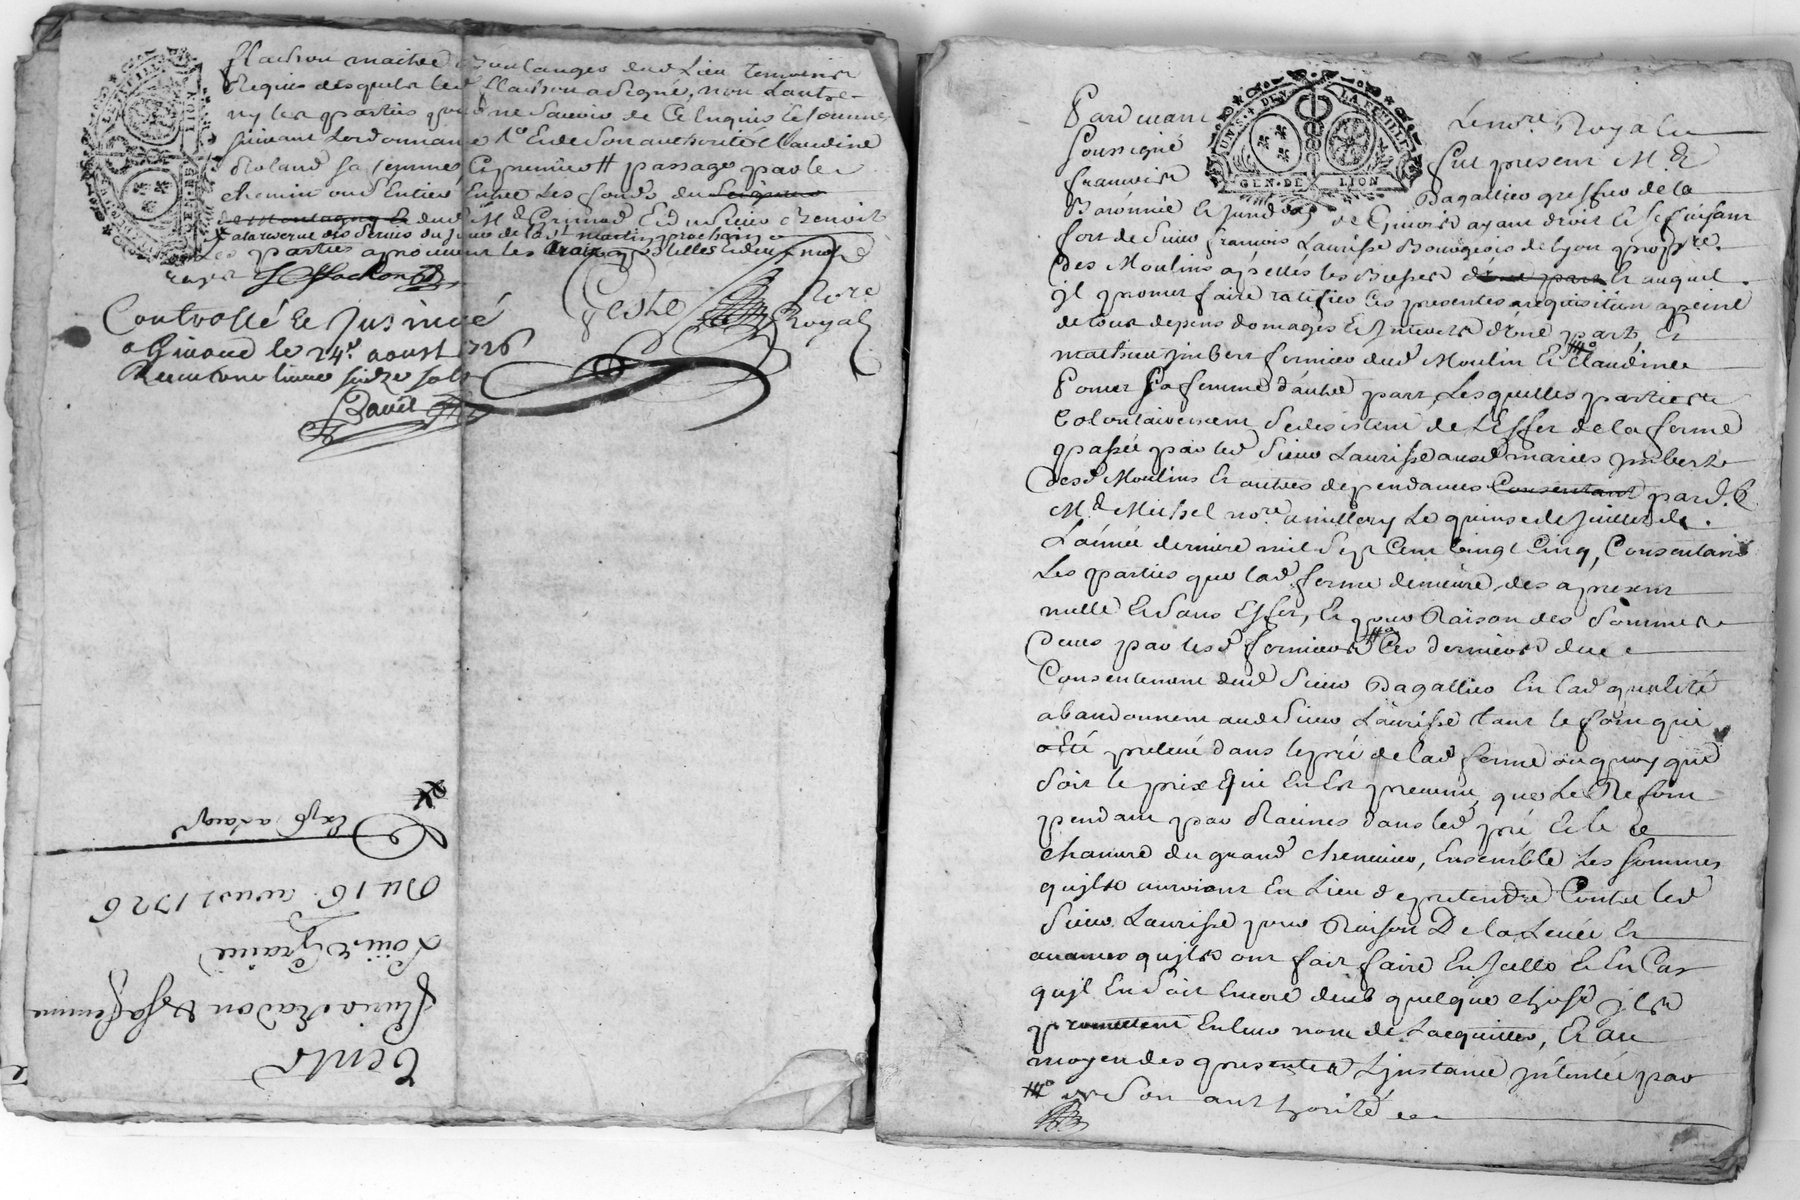 flachon maitre Boulanger dud Lieu temoins
Requis desquels led flachon a signé, non Lautre
ny les parties pour ne Scavoir de Ce Enquis et sommés
suivant Lordonnance Claudine
Roland sa femme passage par le
chemin Entier Entre Les fonds du
dud Sr Benoit
a la reserve des Servis du jour de la St martin prochain
Les parties aprouvent les
flachon
Geste Nore Royal
Controllé et Insinué
a Givord le 24e. aoust 1726
Receu une livre seize sols
David
Du 16 aoust 1726
Louis Graine
Radon & sa femme
Vente
UN S. + DEN. LA FEUILLE
GEN. DE LION
Pardevant Le nore. Royal
Soussigné fut present Mr
francois Dagallier greffier de la
Baronnie et Jurid on de Givors ayant droit et se faisant
fort de Sieur francois Laurisse Bourgeois de Lyon propre.
des Moulins appellés les auquel
il promet faire ratifier les presentes a requisition a peine
de tous depens domages et Interets d'une part, Et
mathieu jmbert fermier dud Moulin Et Claudine
Pomet sa femme d'autre part, Lesquelles parties
volontairement se desistent de L'Effet de la ferme
passée par led Sieur Laurisse ausd mariés jmbert
desd Moulins Et autres dependances Consentant pard.
Me Michel nore. a millery Le quinse de Juillet de
L'année derniere mil Sept Cent vingt Cinq, Consentant
Les parties que lad. ferme demeure des a present
nulle Et Sans Effet, Et pour Raison des Sommes
deues par lesd fermiers Ces derniers du
Consentement dud Sieur Dagallier En lad qualité
abandonnent aud Sieur Laurisse tant le foin qui
a été prelevé dans le pré de lad ferme ou quoy que
Soit le prix qui En Est provenu, que Le Refoin
pendant par Racines dans led pré Et le
chanvre du grand cheneuier, Ensemble Les Sommes
quils auroient Eu Lieu de pretendre Contre led
Sieur Laurisse pour Raison De la Levée Et
avances quils ont fait faire En Icelle Et En Cas
qu'il En Soit Encore deub quelque chose ils
promettent En leur nom de Lacquitter, Et au
moyen des presentes L'instance jntentée par
de Son authorité